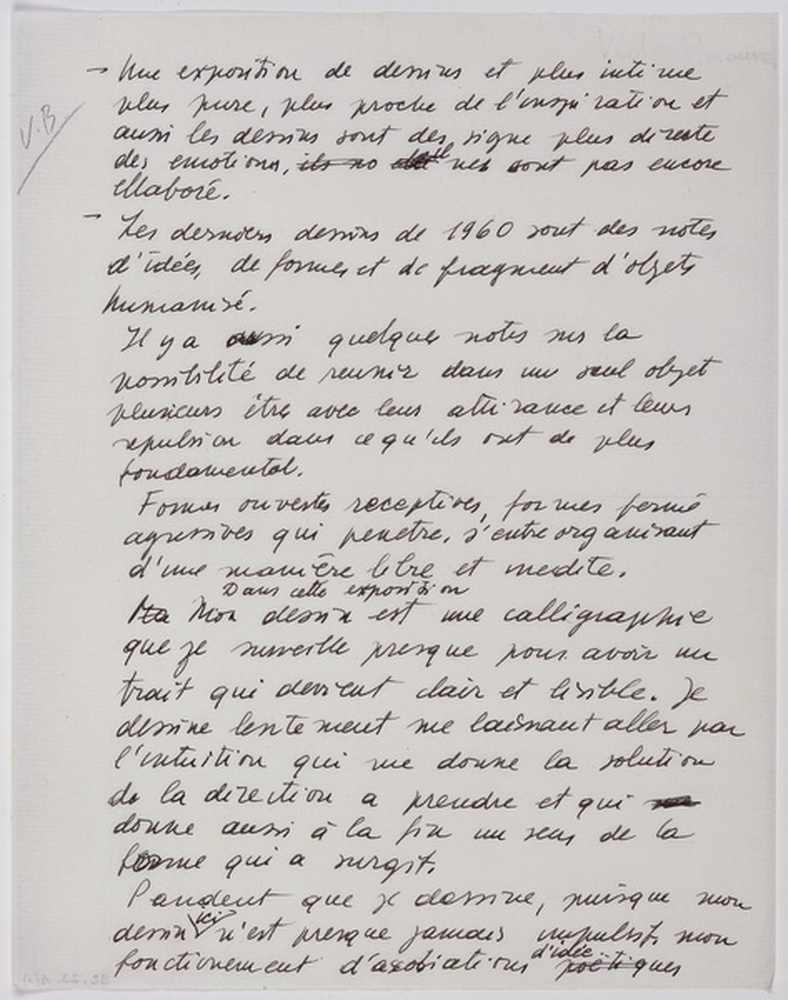 V.B
→ Une exposition de dessins et plus intime
plus pure, plus proche de l'inspiration et
aussi les dessins sont des signe plus directe
des emotions, ils no nes sont pas encore
ellaboré.
- Les derniers dessins de 1960 sont des notes
d'idées, de formes et de fragment d'objets
humanisé.
Il y a aussi quelques notes sur la
possibilité de reunir dans un seul objet
plusieurs êtres avec leur attirance et leurs
repulsion dans ce qu'ils ont de plus
fondamental.
Formes ouvertes receptives, formes fermé
agressives qui penetre, s'entreorganisant
d'une manière libre et inedite.
Dans cette exposition
Mon dessin est une calligraphie
que je surveille presque pour avoir un
trait qui devient clair et lisible. Je
dessine lentement me laissant aller par
l'intuition qui me donne la solution
de la direction a prendre et qui
donne aussi à la fin un sens de la
forme qui a surgit.
Pandent que je dessine, puisque mon
dessin ici n'est presque jamais impulsif, mon
d'idée
fonctionement d'assosiations poètiques